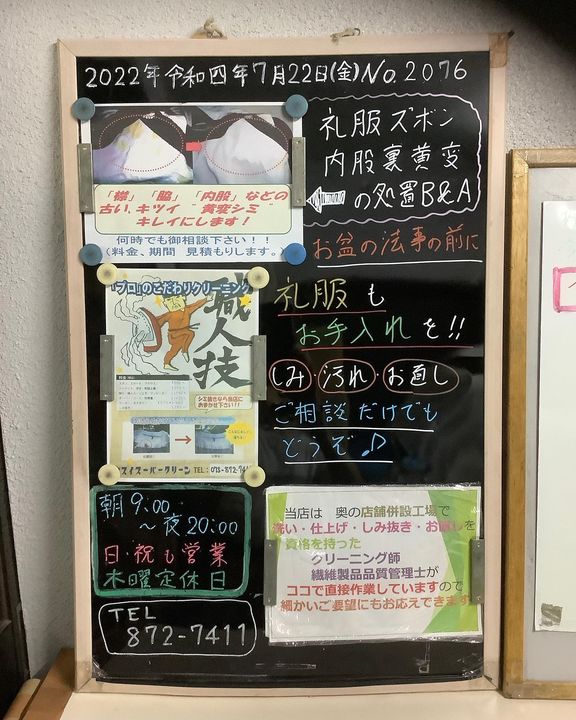 2022年令和四年7月22日(金)No.2076
礼服ズボン
内股裏黄変
の処置B&A
「襟」「脇」「内股」などの
古い、キツイ ”黄変シミ”
キレイにします！
何時でも御相談下さい！！
（料金、期間 見積もりします。）
お盆の法事の前に
礼服も
お手入れを!!
しみ・汚れ・お直し
ご相談だけでも
どうぞ♪
「プロ」のこだわりクリーニング
職人技
シミ抜きなら当店に
おまかせ下さい!!
スイスーパークリーン TEL:078-872-7411
朝9:00
～夜20:00
日・祝も営業
木曜定休日
TEL
872-7411
当店は 奥の店舗併設工場で
洗い・仕上げ・しみ抜き・お直しを
資格を持った
クリーニング師
繊維製品品質管理士が
ココで直接作業していますので
細かいご要望にもお応えできます